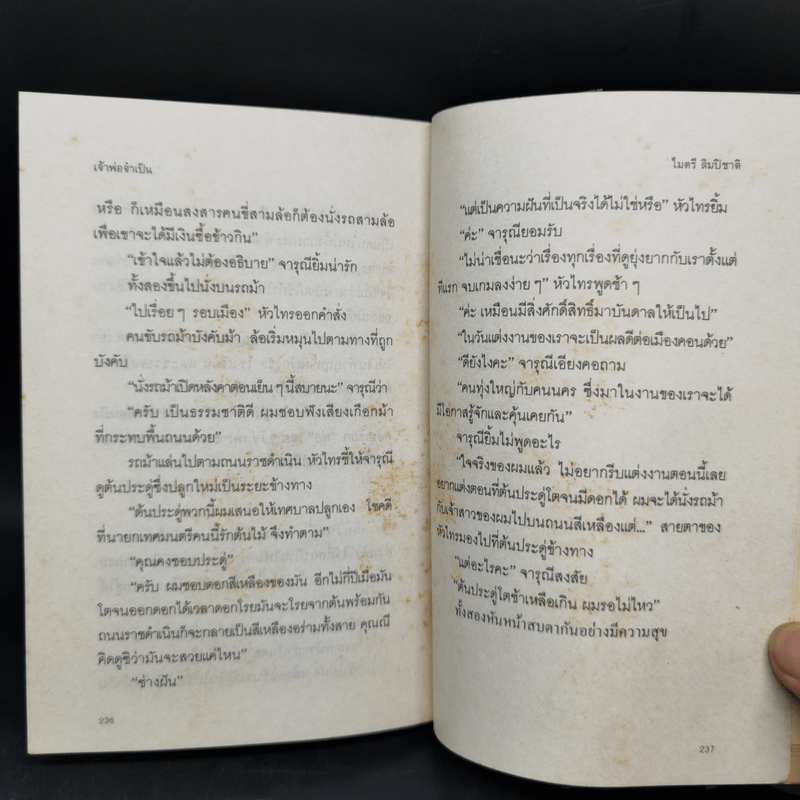 เจ้าพ่อจำเป็น
หรือ ก็เหมือนสงสารคนขี่สามล้อก็ต้องนั่งรถสามล้อ
เพื่อเขาจะได้มีเงินซื้อข้าวกิน”
“เข้าใจแล้วไม่ต้องอธิบาย” จารุณียิ้มน่ารัก
ทั้งสองขึ้นไปนั่งบนรถม้า
“ไปเรื่อยๆ รอบเมือง” หัวไทรออกคำสั่ง
คนขับรถม้าบังคับม้า ล้อเริ่มหมุนไปตามทางที่ถูก
บังคับ
“นั่งรถม้าเปิดหลังคาตอนเย็นๆ นี้สบายนะ” จารุณีว่า
“ครับ เป็นธรรมชาติดี ผมชอบฟังเสียงเกือกม้า
ที่กระทบพื้นถนนด้วย”
รถม้าแล่นไปตามถนนราชดำเนิน หัวไทรชี้ให้จารุณี
ดูต้นประดู่ซึ่งปลูกใหม่เป็นระยะข้างทาง
“ต้นประดู่พวกนี้ผมเสนอให้เทศบาลปลูกเอง โชคดี
ที่นายกเทศมนตรีคนนี้รักต้นไม้ จึงทำตาม”
“คุณคงชอบประดู่”
“ครับ ผมชอบดอกสีเหลืองของมัน อีกไม่กี่ปีเมื่อมัน
โตจนออกดอกได้เวลาดอกโรยมันจะโรยจากต้นพร้อมกัน
ถนนราชดำเนินก็จะกลายเป็นสีเหลืองอร่ามทั้งสาย คุณณี
คิดดูซิว่ามันจะสวยแค่ไหน”
“ช่างฝัน”
236
ไมตรี ลิมปิชาติ
“แต่เป็นความฝันที่เป็นจริงได้ไม่ใช่หรือ” หัวไทรยิ้ม
“ค่ะ” จารุณียอมรับ
“ไม่น่าเชื่อนะว่าเรื่องทุกเรื่องที่ดูยุ่งยากกับเราตั้งแต่
ทีแรก จบเกมลงง่าย ๆ” หัวไทรพูดช้า ๆ
“ค่ะ เหมือนมีสิ่งศักดิ์สิทธิ์มาบันดาลให้เป็นไป”
“ในวันแต่งงานของเราจะเป็นผลดีต่อเมืองคอนด้วย”
“ดียังไงคะ” จารุณีเอียงคอถาม
“คนทุ่งใหญ่กับคนนคร ซึ่งมาในงานของเราจะได้
มีโอกาสรู้จักและคุ้นเคยกัน”
จารุณียิ้มไม่พูดอะไร
“ใจจริงของผมแล้ว ไม่อยากรีบแต่งงานตอนนี้เลย
อยากแต่งตอนที่ต้นประดู่โตจนมีดอกได้ ผมจะได้นั่งรถม้า
กับเจ้าสาวของผมไปบนถนนสีเหลืองแต่...” สายตาของ
หัวไทรมองไปที่ต้นประดู่ข้างทาง
“แต่อะไรคะ” จารุณีสงสัย
“ต้นประดู่โตช้าเหลือเกิน ผมรอไม่ไหว”
ทั้งสองหันหน้าสบตากันอย่างมีความสุข
237